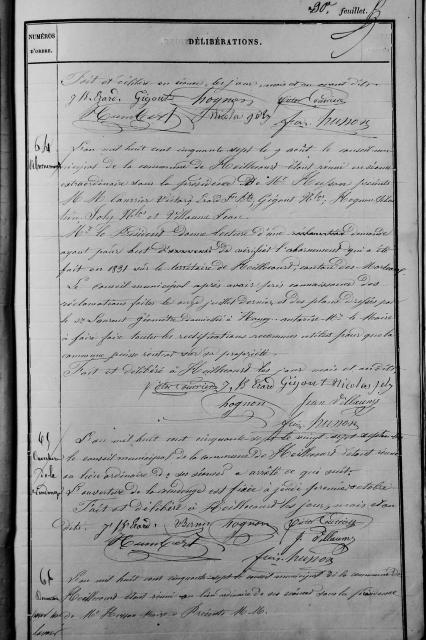 90e. feuillet.
NUMÉROS
D'ORDRE.
DÉLIBÉRATIONS.
Fait et délibéré en séance, les jour, mois et an avant dits.
J B. Erard. Gigout hognon Victor Couvrier
Humbert Nicolas Joly Jean husson
64
L'an mil huit cent cinquante sept le 9 août le conseil mu-
nicipal de la commune de Heillecourt étant réuni en séance
extraordinaire sous la présidence de Mr. Husson présents
M M Couvrier Victor, Erard J. Bte, Gigout Nas, Hognon
Joly Nas et Villaume Jean.
Mr. le Président donne lecture d'une demande
ayant pour but de vérifier l'abornement qui a été
fait en 1831 sur le territoire de Heillecourt, canton des
Le Conseil municipal après avoir pris connaissance des
réclamations faites le onze juillet dernier et des plans dressés par
le Sr géomètre domicilié à Nancy autorise Mr. le Maire
à faire faire toutes les rectifications reconnues utiles pour que la
commune puisse rentrer sur sa propriété.
Fait et délibéré à Heillecourt les jour mois et an dits.
Victor Couvrier J. B Erard Gigout Nicolas Joly
hognon Jean Villaume
Jean husson
65
L'an mil huit cent cinquante sept le vingt sept septembre
le conseil municipal de la commune de Heillecourt étant réuni
au lieu ordinaire de ses séances a arrêté ce qui suit.
L'ouverture de la vendange est fixée à jeudi premier octobre
Fait et délibéré à Heillecourt les jour, mois et an
dits. J B Erard hognon Victor Couvrier
Humbert J. Villaume
Jean husson
L'an mil huit cent cinquante sept le conseil municipal de la commune de
Heillecourt étant réuni au lieu ordinaire de ses séances sous la présidence
de Mr Husson Maire. Présents M. M.